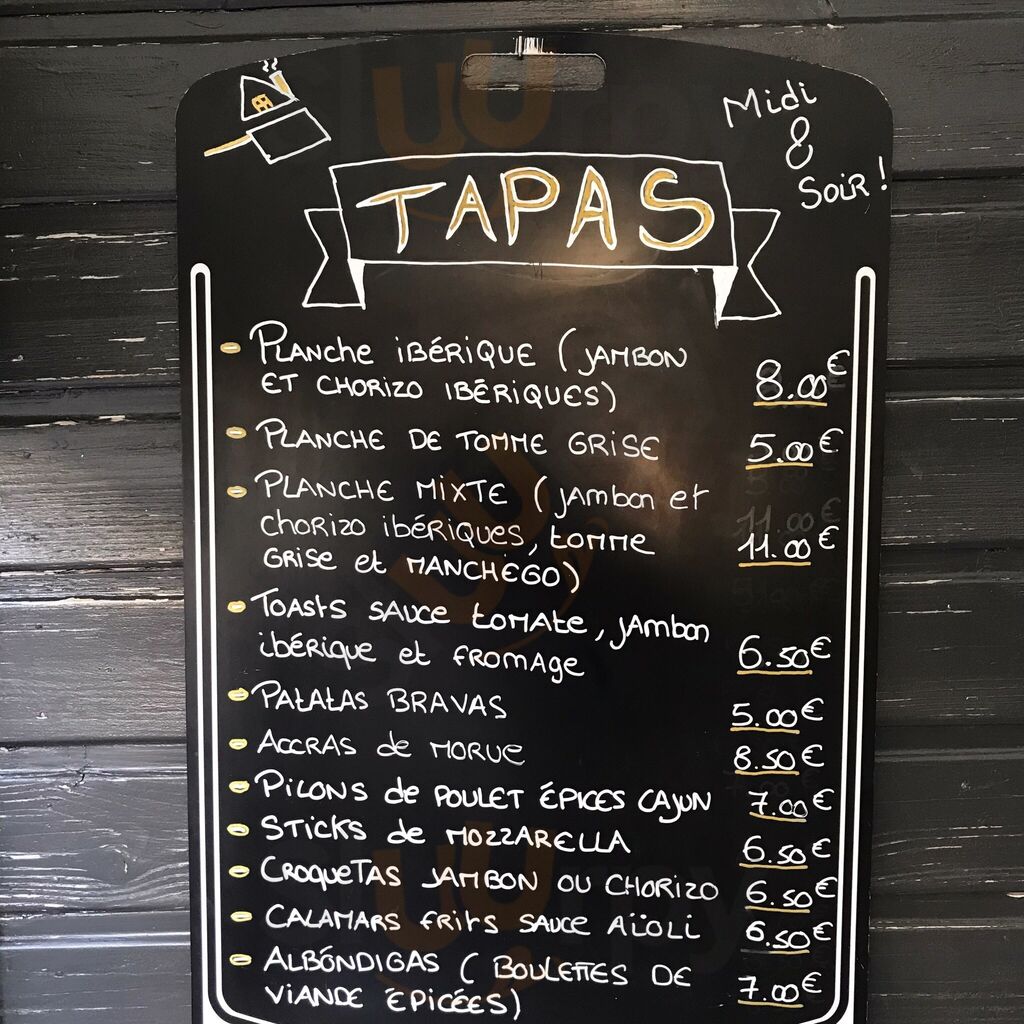 Midi
&
Soir !
TAPAS
- Planche ibérique (jambon 8.00€
et chorizo ibériques)
- Planche de tomme grise 5.00€
- Planche mixte (jambon et
chorizo ibériques, tomme 11.00€
grise et manchego)
- Toasts sauce tomate, jambon
ibérique et fromage 6.50€
- Patatas bravas 5.00€
- Accras de morue 8.50€
- Pilons de poulet épices cajun 7.00€
- Sticks de mozzarella 6.50€
- Croquetas jambon ou chorizo 6.50€
- Calamars frits sauce aïoli 6.50€
- Albóndigas (boulettes de 7.00€
viande épicées)